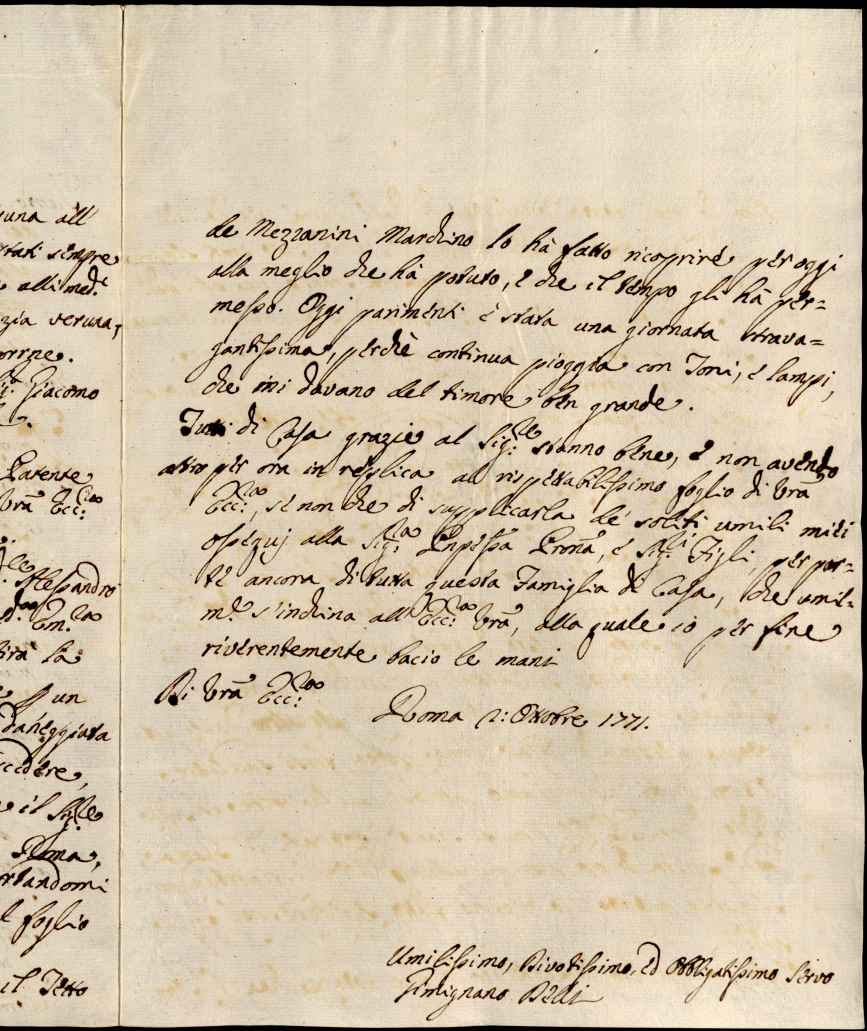 guna all'
stati sempre
alli med.i
zia veruna,
orrne.
Sig.r Giacomo
Patente
Vrã Ecc.za
Alessandro
Em.za
tirà la
un
daneggiata
ccedere,
il Sig.re
Roma,
ortandomi
foglio
il Tetto
de Mezzanini Marchino lo hà fatto ricoprire per oggi
alla meglio che hà potuto, e che il tempo gli hà per=
messo. Oggi parimenti è stata una giornata strava=
gantissima, perchè continua pioggia con Toni, e lampi,
che mi davano del timore ben grande.
Tutti di Casa grazie al Sig.re stanno bene, e non avendo
altro per ora in replica al rispettabilissimo foglio di Vrã
Ecc.za, se non che di supplicarla de' soliti umili miei
ossequj alla Sig.ra Pnpessa Pronã, e Sig.ri Figli per par=
te ancora di tutta questa Famiglia di Casa, che umil=
m.e s'inchina all'Ecc.za Vrã, alla quale io per fine
riverentemente bacio le mani
Di Vrã Ecc.za
Roma 2: Ottobre 1771.
Umilissimo, Divotissimo, ed Obbligatissimo Servo
Gimignano Belli